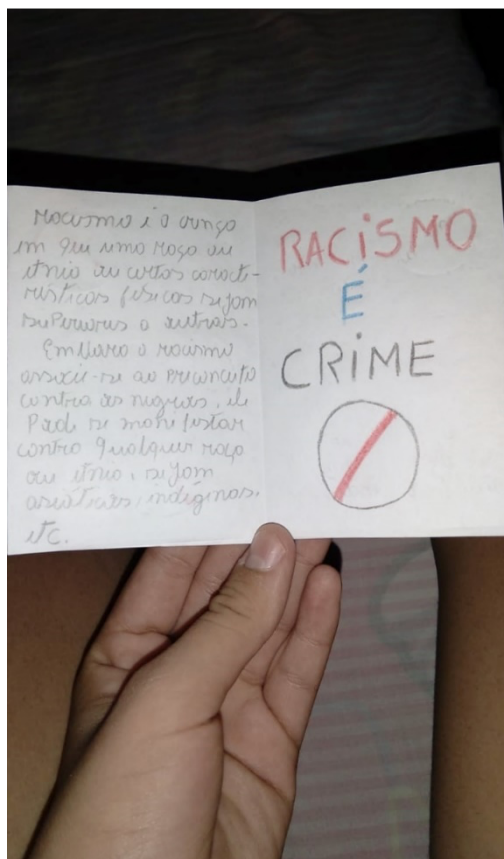 Racismo é a crença
em que uma raça ou
etnia ou certas caracte-
rísticas físicas sejam
superiores a outras.
Embora o racismo
associe-se ao preconceito
contra os negros, ele
Pode se manifestar
contra qualquer raça
ou etnia, sejam
asiáticas, indígenas,
etc.
RACISMO
É
CRIME